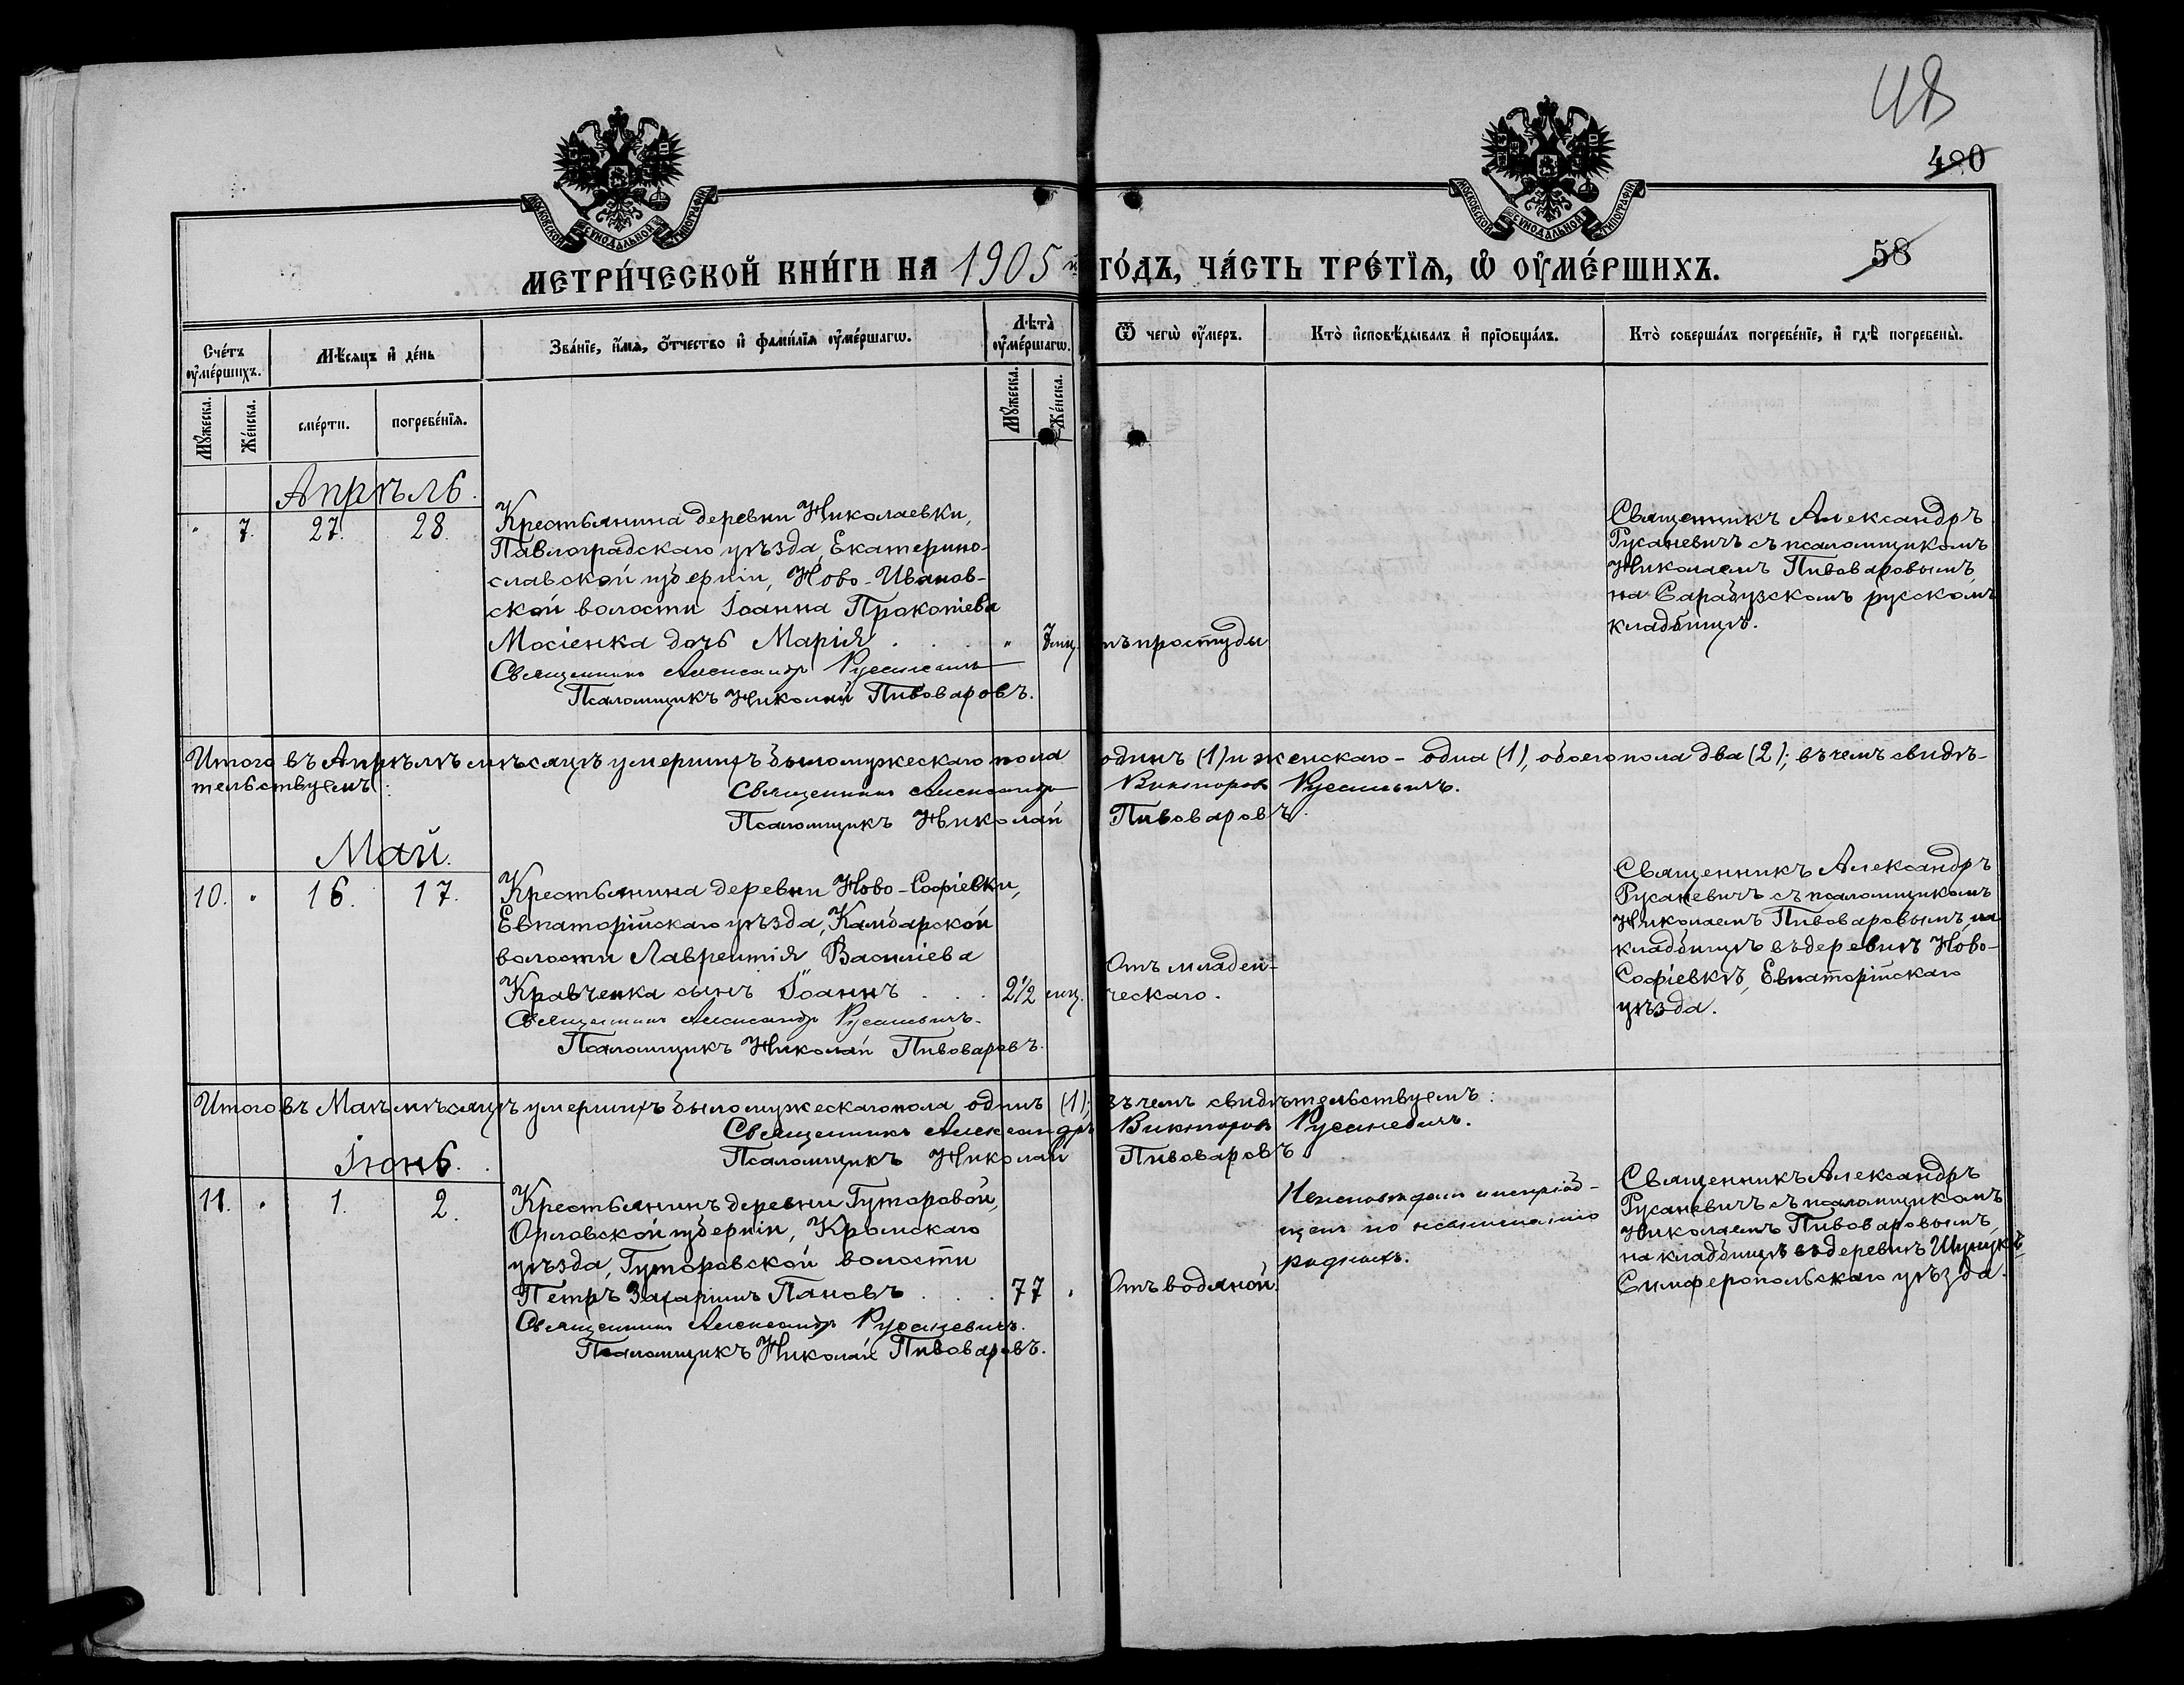 48
480
58
МОСКОВСКОЙ СѴНОДАЛЬНОЙ ТИПОГРАФІИ
МОСКОВСКОЙ СѴНОДАЛЬНОЙ ТИПОГРАФІИ
МЕТРИ́ЧЕСКОЙ КНИ́ГИ НА 1905 й ГО́ДЪ, ЧА́СТЬ ТРЕ́ТЇѦ, Ѽ ОУ҆МЕ́РШИХЪ.
Сче́тъ оу҆ме́ршихъ.
Мѣ́сяцъ и҆ де́нь
Зва́нїе, и҆́мѧ, ѻ҆́тчество и҆ фами́лїѧ оу҆ме́ршагѡ.
Лѣта̀ оу҆ме́ршагѡ.
Ѿ чегѡ̀ оу҆́меръ.
Кто̀ и҆сповѣ́дывалъ и҆ прїѡбща́лъ.
Кто̀ соверша́лъ погребе́нїе, и҆ гдѣ̀ погребены̀.
Мꙋ́жеска.
Же́нска.
сме́рти.
погребе́нїѧ.
Мꙋ́жеска.
Же́нска.
Апрѣль.
" 7. 27. 28.
Крестьянина деревни Николаевки,
Павлоградскаго уѣзда, Екатерино-
славской губерніи, Ново-Иванов-
ской волости Іоанна Прокопіева
Мосіенка дочь Марія . . . . " 7 мц. отъ простуды
Священникъ Александръ Русаневичъ
Псаломщикъ Николай Пивоваровъ.
Священникъ Александръ
Русаневичъ съ псаломщикомъ
Николаемъ Пивоваровымъ
на Сарабузскомъ русскомъ
кладбищѣ.
Итого въ Апрѣлѣ мѣсяцѣ умершихъ было мужескаго пола одинъ (1) и женскаго - одна (1), обоего пола два (2); въ чемъ свидѣ-
тельствуемъ:
Священникъ Александръ Викторовъ Русаневичъ.
Псаломщикъ Николай Пивоваровъ.
Май.
10. " 16. 17.
Крестьянина деревни Ново-Софіевки,
Евпаторійскаго уѣзда, Камбарской
волости Лаврентія Василіева
Кравченка сынъ Іоаннъ . . . 2½ мц.
Священникъ Александръ Русаневичъ.
Псаломщикъ Николай Пивоваровъ.
Отъ младен-
ческаго.
Священникъ Александръ
Русаневичъ съ псаломщикомъ
Николаемъ Пивоваровымъ на
кладбищѣ въ деревнѣ Ново-
Софіевкѣ, Евпаторійскаго
уѣзда.
Итого въ Маѣ мѣсяцѣ умершихъ было мужескаго пола одинъ (1); въ чемъ свидѣтельствуемъ:
Священникъ Александръ Викторовъ Русаневичъ.
Псаломщикъ Николай Пивоваровъ
Іюнь.
11. " 1. 2.
Крестьянинъ деревни Гуторовой,
Орловской губерніи, Кромскаго
уѣзда, Гуторовской волости
Петръ Захаріинъ Пановъ . . . 77 " Отъ водяной.
Священникъ Александръ Русаневичъ.
Псаломщикъ Николай Пивоваровъ.
родныхъ.
Священникъ Александръ
Русаневичъ съ псаломщикомъ
Николаемъ Пивоваровымъ,
на кладбищѣ въ деревнѣ
Симферопольскаго уѣзда.